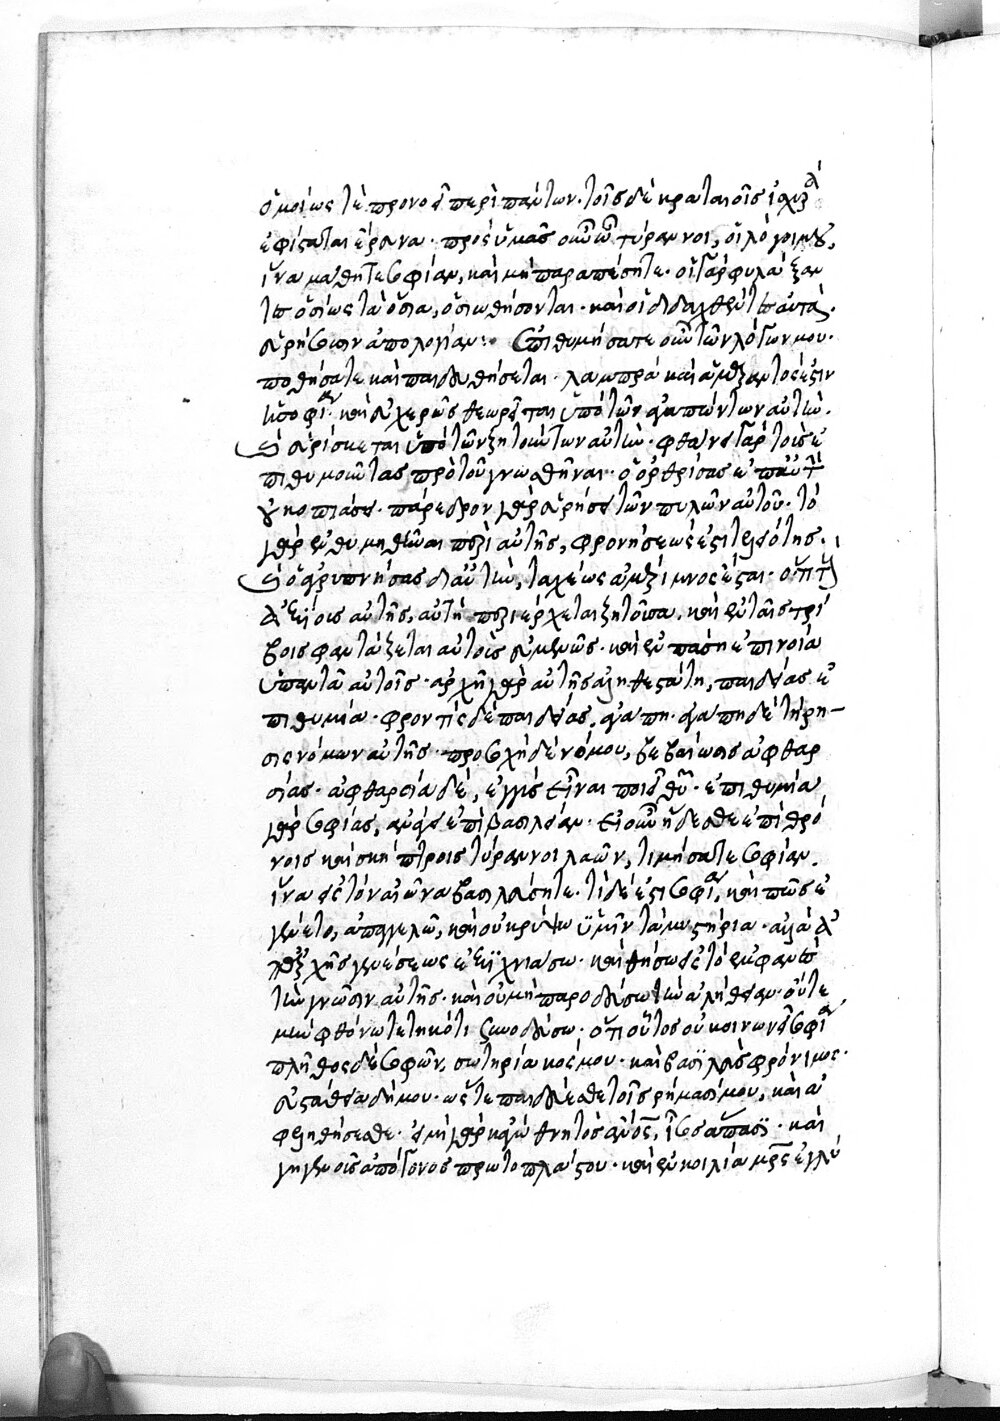 ὁμοίως τὲ προνοεῖ περὶ πάντων· τοῖς δὲ κραταιοῖς ἰσχυρὰ
ἐφίσταται ἔρευνα· πρὸς ὑμᾶς οὖν ὦ τύραννοι, οἱ λόγοι μου,
ἵνα μάθητε σοφίαν, καὶ μὴ παραπέσητε· οἱ γὰρ φυλάξαν
τες ὁσίως τὰ ὅσια, ὁσιωθήσονται· καὶ οἱ διδαχθέντες αὐτὰ·
εὑρήσουσιν ἀπολογίαν· ἐπιθυμήσατε οὖν τῶν λόγων μου·
ποθήσατε καὶ παιδευθήσεται· λαμπρὰ καὶ ἀμάραντός ἐστιν
ἡ σοφία· καὶ εὐχερῶς θεωρεῖται ὑπὸ τῶν ἀγαπώντων αὐτήν·
καὶ εὑρίσκεται ὑπὸ τῶν ζητούντων αὐτήν· φθάνει γὰρ τοὺς ἐ
πιθυμοῦντας πρὸ τοῦ γνωσθῆναι· ὁ ὀρθρίσας ἐπ αὐτὴν
οὐ κοπιάσει· πάρεδρον γὰρ εὑρήσει τῶν πυλῶν αὐτοῦ· τὸ
γὰρ ἐνθυμηθῆναι περὶ αὐτῆς, φρονήσεώς ἐστι τελειότης·
καὶ ὁ ἀγρυπνήσας δι αὐτὴν, ταχέως ἀμέριμνος ἔσται· ὅτι τοὺς
ἀξίους αὐτῆς, αὐτὴ περιέρχεται ζητοῦσα, καὶ ἐν ταῖς τρί
βοις φαντάζεται αὐτοῖς εὐμενῶς· καὶ ἐν πάσῃ ἐπινοίᾳ
ὑπαντᾶ αὐτοῖς· ἀρχὴ γὰρ αὐτῆς ἀληθεστάτη, παιδείας ἐ
πιθυμία· φροντὶς δὲ παιδείας, ἀγάπη· ἀγάπη δὲ τήρη
σις νόμων αὐτῆς· προσοχὴ δὲ νόμου, βεβαίωσις ἀφθαρ
σίας· ἀφθαρσία δὲ, ἐγγὺς εἶναι ποιεῖ θῦ· ἐπιθυμία
γὰρ σοφίας, ἀνάγει ἐπὶ βασιλείαν· εἰ οὖν ἥδεσθε ἐπὶ θρό
νοις καὶ σκήπτροις τύραννοι λαῶν, τιμήσατε σοφίαν,
ἵνα εἰς τὸν αἰῶνα βασιλεύσητε· τί δέ ἐστι σοφία, καὶ πῶς ἐ
γένετο, ἀπαγγελῶ, καὶ οὐ κρύψω ὑμῖν τὰ μυστήρια· ἀλλὰ ἀπ
ἀρχῆς γενέσεως ἐξιχνιάσω· καὶ θήσω εἰς τὸ ἐμφανὲς
τὴν γνῶσιν αὐτῆς· καὶ οὐ μὴ παροδεύσω τὴν ἀλήθειαν· οὔτε
μὴν φθόνῳ τετηκότι συνοδεύσω· ὅτι οὗτος οὐ κοινωνεῖ σοφίᾳ
πλῆθος δὲ σοφῶν, σωτηρία κόσμου· καὶ βασιλεὺς φρόνιμος·
εὐστάθεια δήμου· ὥστε παιδεύεσθε τοῖς ῥήμασί μου, καὶ ὠ
φεληθήσεσθε· εἰμὶ γὰρ κἀγὼ θνητὸς ἄνος, ἶσος ἅπασι· καὶ
γηγενοῦς ἀπόγονος πρωτοπλάστου· καὶ ἐν κοιλίᾳ μρς ἐγλύ